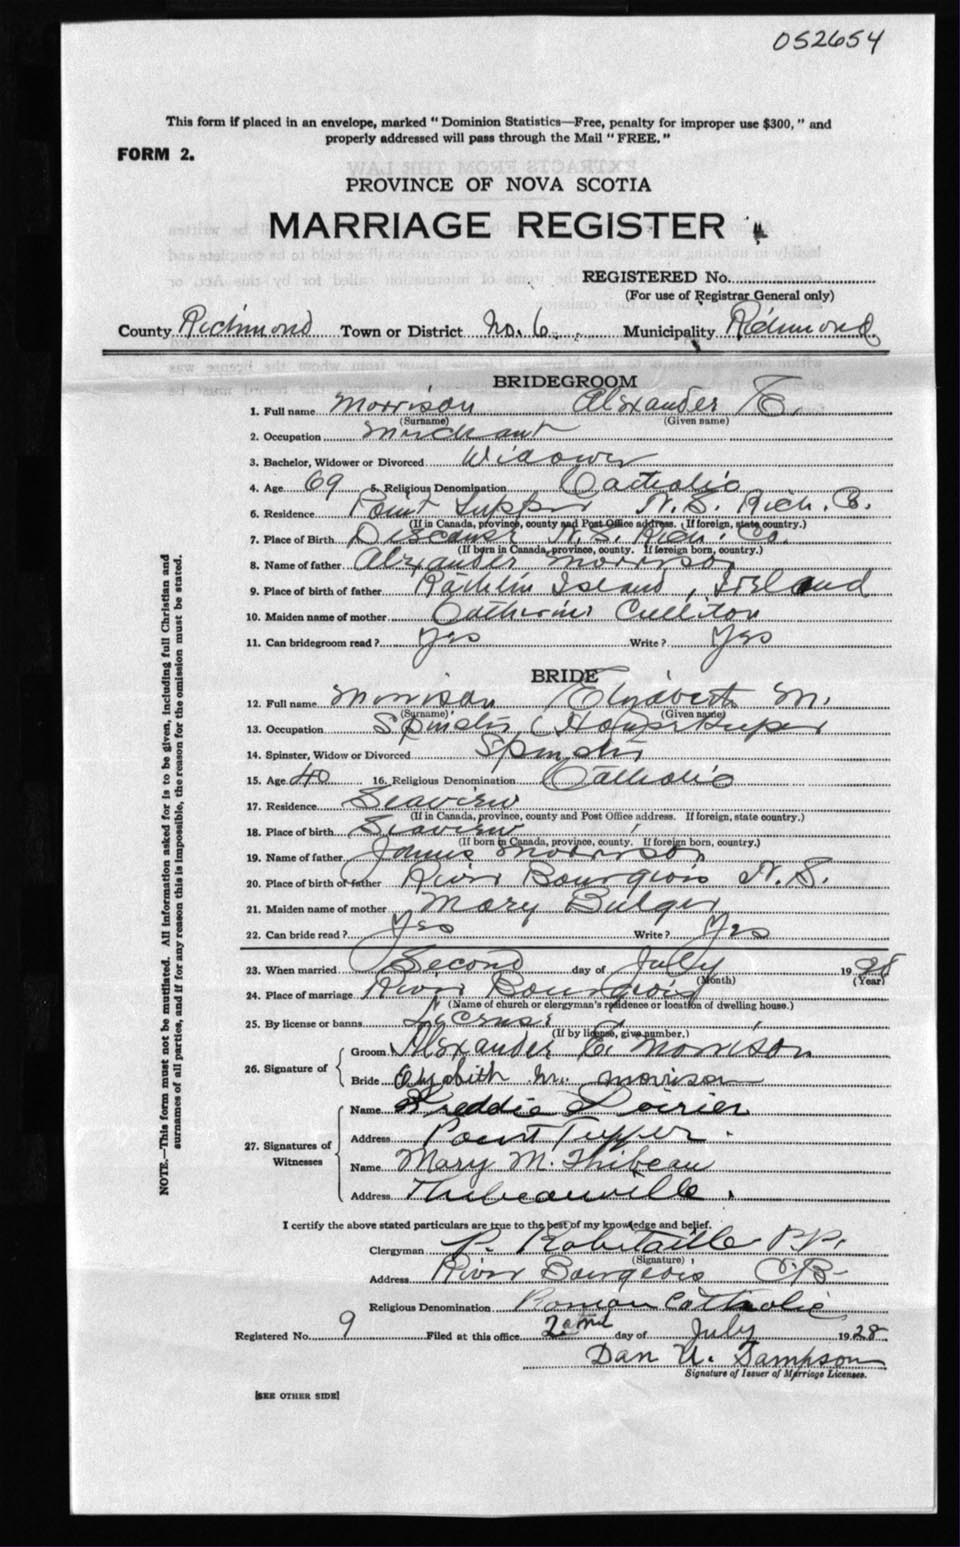 052654
This form if placed in an envelope, marked "Dominion Statistics—Free, penalty for improper use $300," and
properly addressed will pass through the Mail "FREE."
FORM 2.
PROVINCE OF NOVA SCOTIA
MARRIAGE REGISTER
REGISTERED No.
(For use of Registrar General only)
County Richmond Town or District No. 6. Municipality Richmond
BRIDEGROOM
1. Full name Morrison Alexander E.
(Surname) (Given name)
2. Occupation Merchant
3. Bachelor, Widower or Divorced Widower
4. Age 69 5. Religious Denomination Catholic
6. Residence Point Tupper N.S. Rich. Co.
(If in Canada, province, county and Post Office address. If foreign, state country.)
7. Place of Birth Discouse N.S. Rich. Co.
(If born in Canada, province, county. If foreign born, country.)
8. Name of father Alexander Morrison
9. Place of birth of father Rathlin Island, Ireland
10. Maiden name of mother Catherine Culliton
11. Can bridegroom read? Yes Write? Yes
BRIDE
12. Full name Morrison Elizabeth M.
(Surname) (Given name)
13. Occupation Spinster (Housekeeper
14. Spinster, Widow or Divorced Spinster
15. Age 40 16. Religious Denomination Catholic
17. Residence Seaview
(If in Canada, province, county and Post Office address. If foreign, state country.)
18. Place of birth Seaview
(If born in Canada, province, county. If foreign born, country.)
19. Name of father James Morrison
20. Place of birth of father River Bourgeois N.S.
21. Maiden name of mother Mary Bulger
22. Can bride read? Yes Write? Yes
23. When married Second day of July 1928
(Month) (Year)
24. Place of marriage River Bourgeois
(Name of church or clergyman's residence or location of dwelling house.)
25. By license or banns License
(If by license, give number.)
26. Signature of Groom Alexander E. Morrison
Bride Elizabeth M. Morrison
27. Signatures of Witnesses Name Freddie Poirier
Address Point Tupper.
Name Mary M. Thibeau
Address Thibeauville.
I certify the above stated particulars are true to the best of my knowledge and belief.
Clergyman P. Robitaille P.P.
(Signature)
Address River Bourgeois C.B.
Religious Denomination Roman Catholic
Registered No. 9 Filed at this office 2nd day of July 1928
Dan U. Sampson
Signature of Issuer of Marriage Licenses.
[SEE OTHER SIDE]
NOTE.—This form must not be mutilated. All information asked for is to be given, including full Christian and
surnames of all parties, and if for any reason this is impossible, the reason for the omission must be stated.